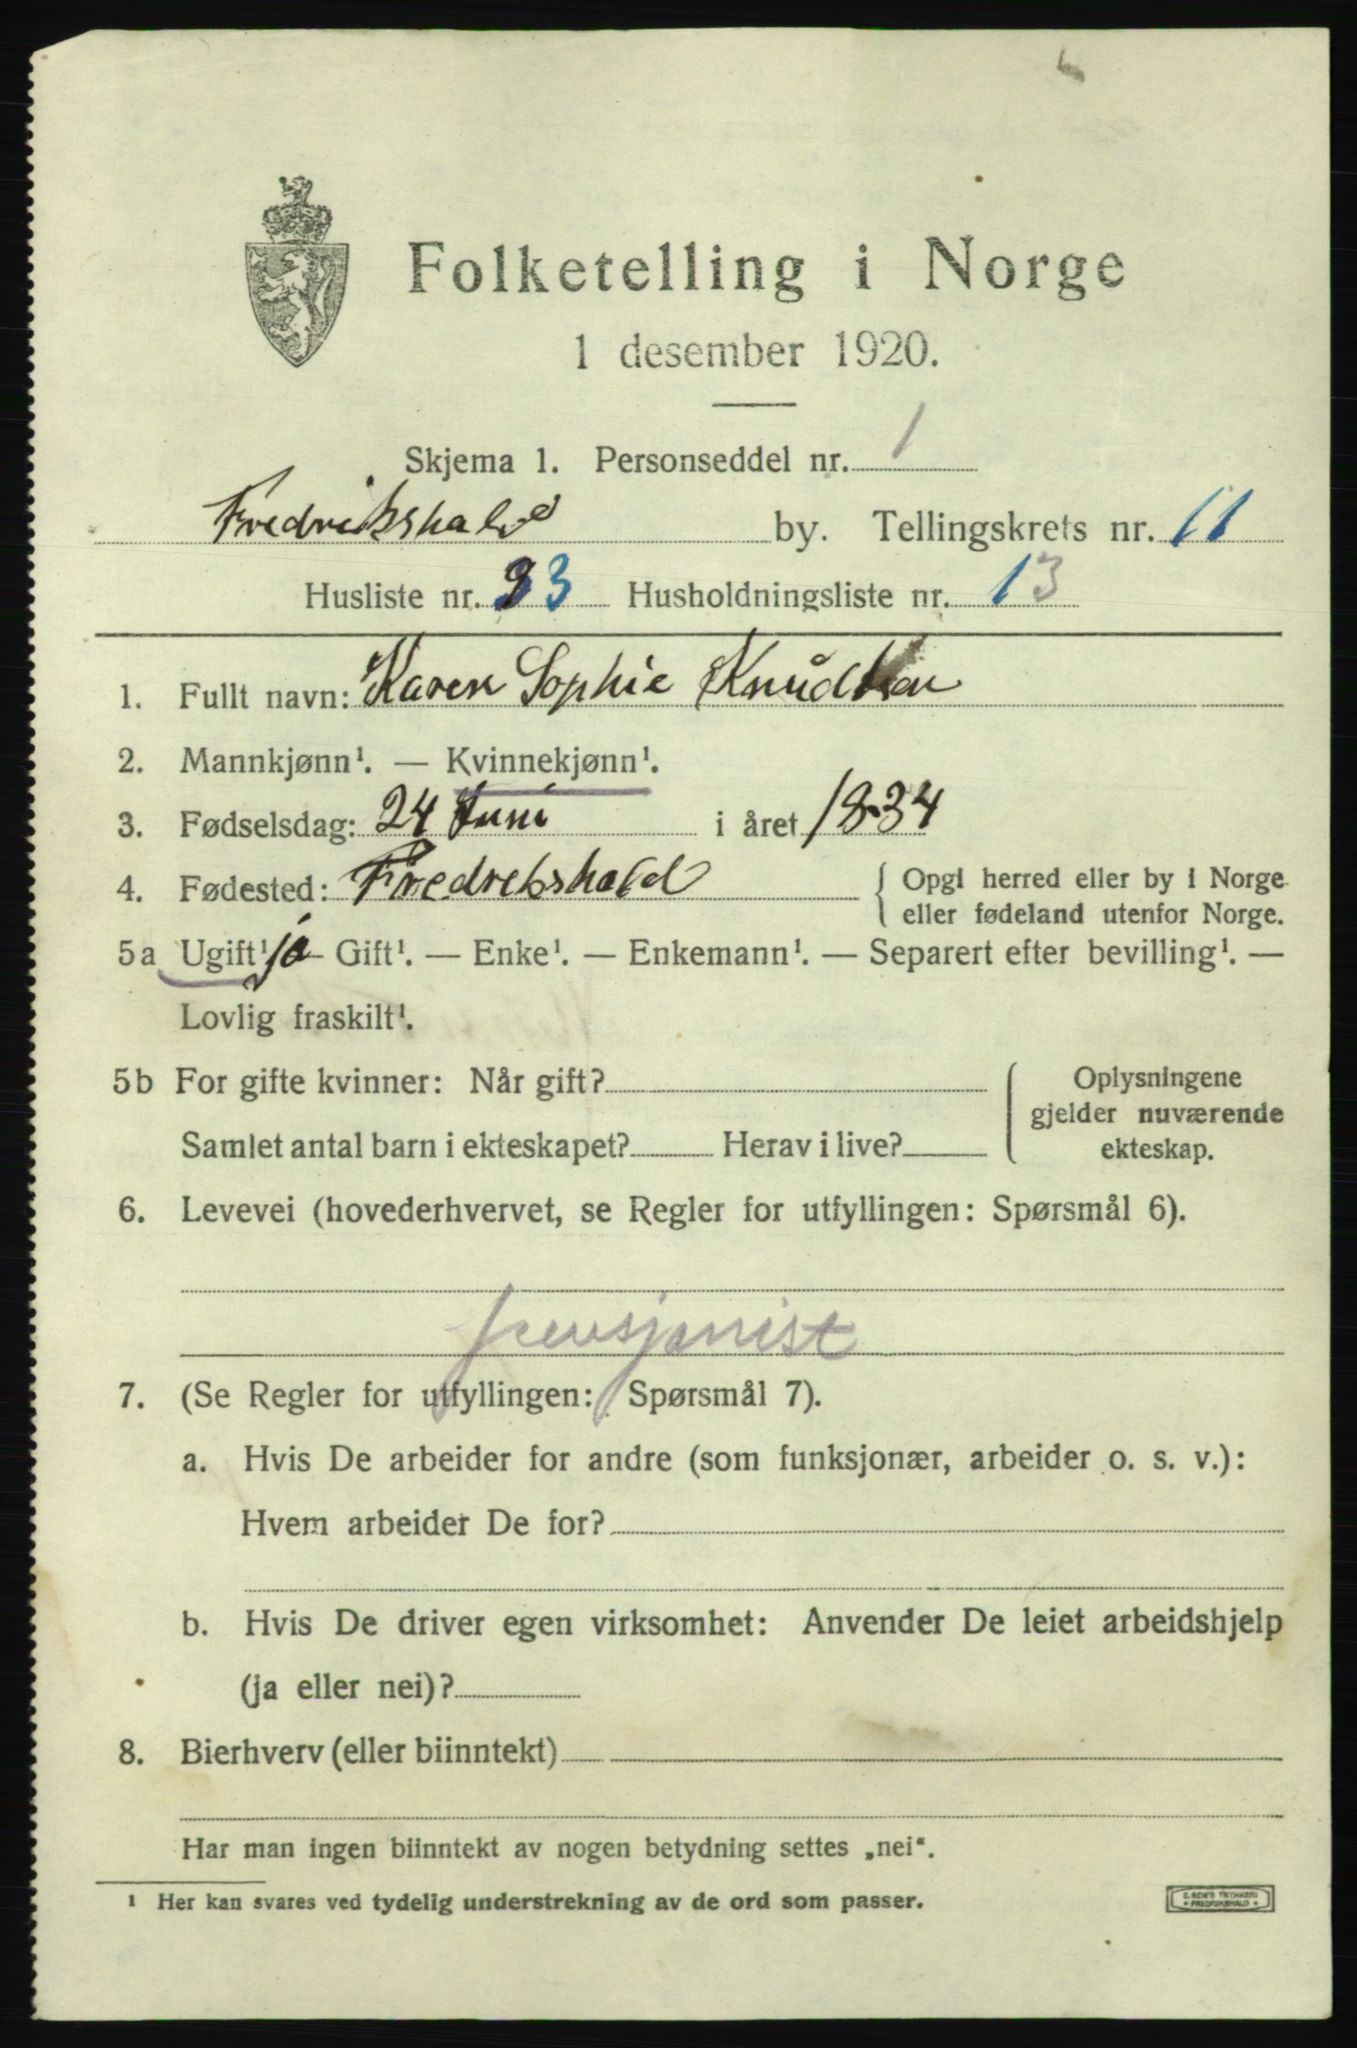 Folketelling i Norge
1 desember 1920.
Skjema 1. Personseddel nr. 1
Fredrikshald by. Tellingskrets nr. 11
Husliste nr. 33 Husholdningsliste nr. 13
1. Fullt navn: Karen Sophie Knudtsen
2. Mannkjønn¹. — Kvinnekjønn¹.
3. Fødselsdag: 24 Juni i året 1834
4. Fødested: Fredrekshald { Opgi herred eller by i Norge
eller fødeland utenfor Norge.
5a Ugift¹ ja — Gift¹. — Enke¹. — Enkemann¹. — Separert efter bevilling¹. —
Lovlig fraskilt¹.
5b For gifte kvinner: Når gift? { Oplysningene
gjelder nuværende
Samlet antal barn i ekteskapet? Herav i live? ekteskap.
6. Levevei (hovederhvervet, se Regler for utfyllingen: Spørsmål 6).
pensjonist
7. (Se Regler for utfyllingen: Spørsmål 7).
a. Hvis De arbeider for andre (som funksjonær, arbeider o. s. v.):
Hvem arbeider De for?
b. Hvis De driver egen virksomhet: Anvender De leiet arbeidshjelp
(ja eller nei)?
8. Bierhverv (eller biinntekt)
Har man ingen biinntekt av nogen betydning settes „nei“.
¹ Her kan svares ved tydelig understrekning av de ord som passer.
E. SEM'S TRYKKERI
FREDRIKSHALD